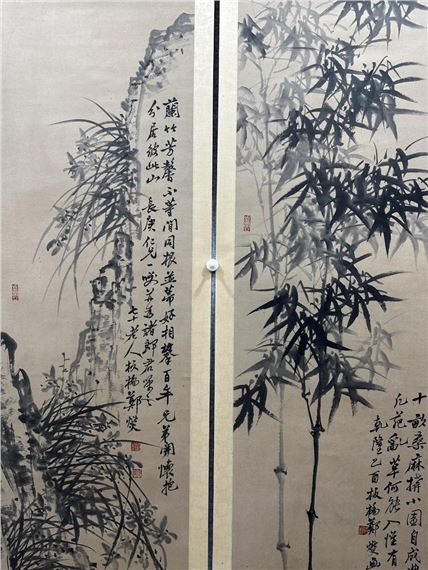 十畝桑麻小園自成
凡葩亂草何能入惟有
乾隆乙酉板橋鄭燮畫
蘭竹芳馨不等閒同根並蒂好相攀百年兄弟開懷抱
分居彼此山 長庚仁兄諸郎君
七十老人板橋鄭燮